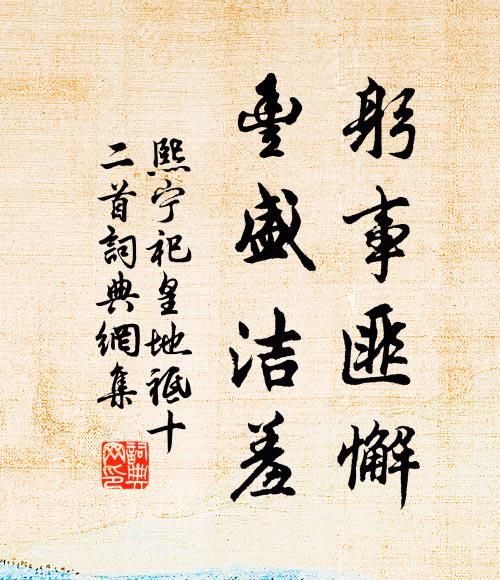 躬事匪懈
豐盛洁羞
熙宁祀皇地祗十
二首詞典網集
詞典网印